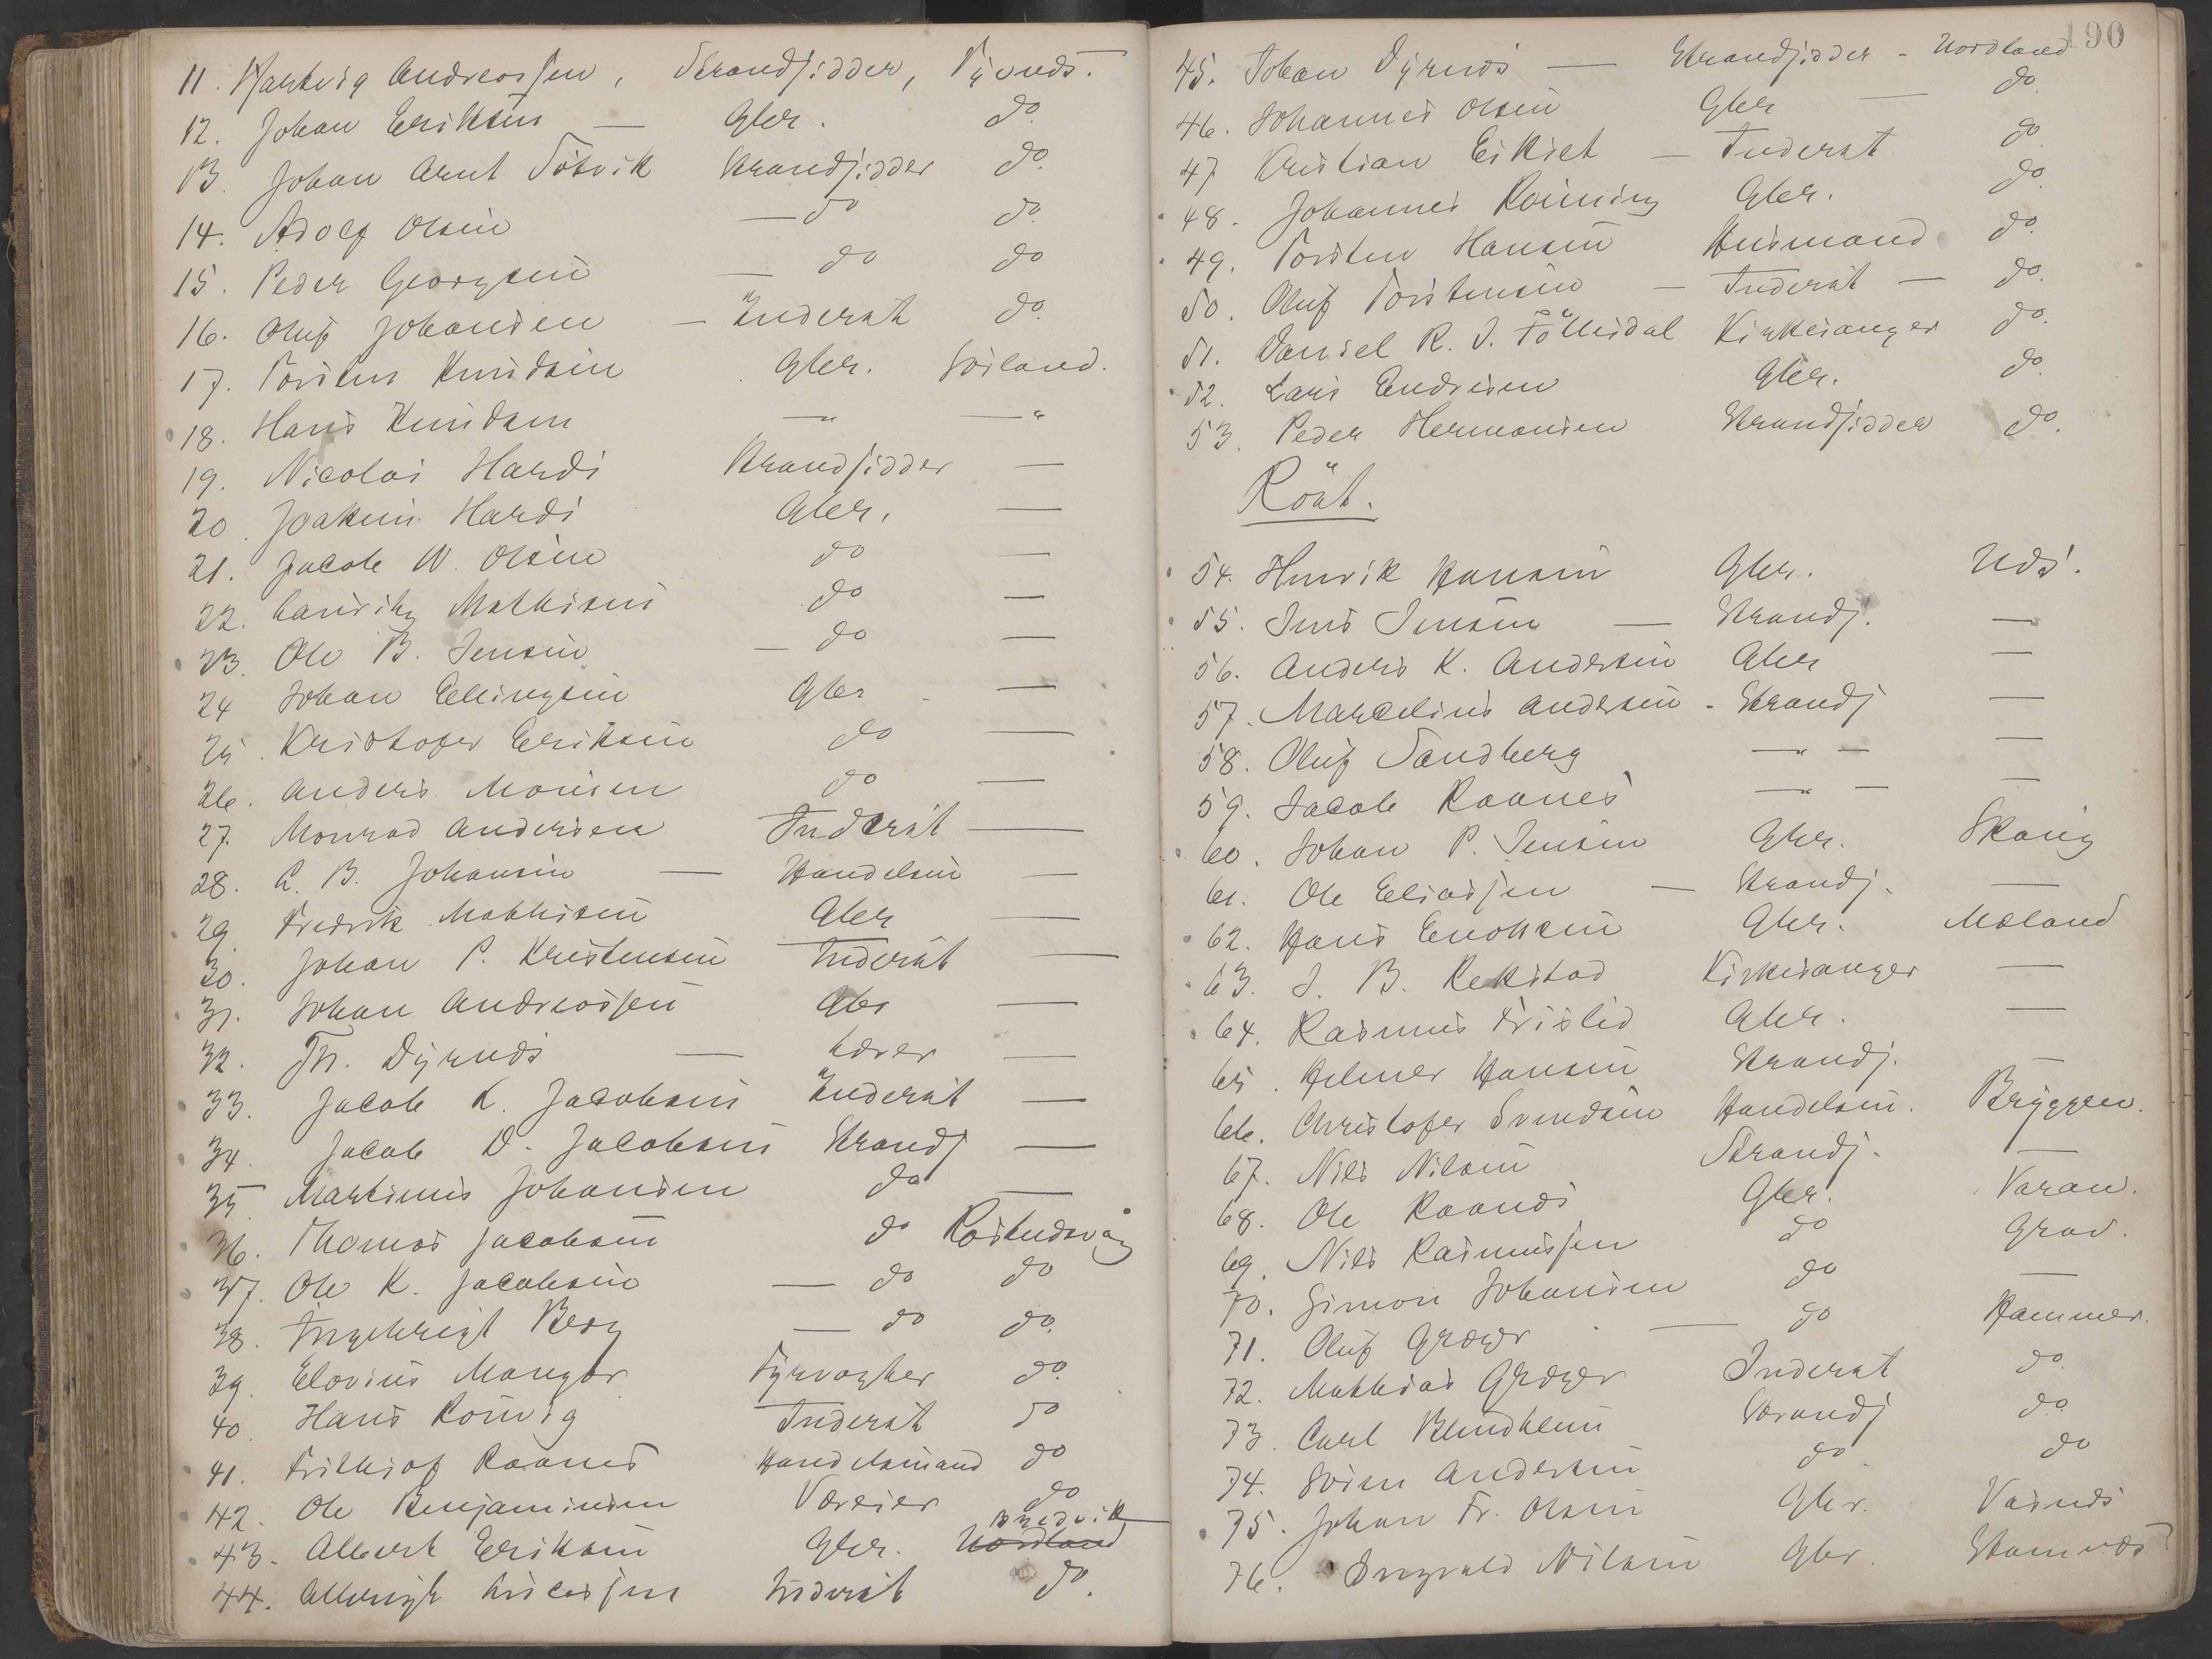 11. Hartvig Andreassen, Strandsidder, Tyvnds.
12. Johan Eriksen — Gbr. do
13. Johan Arnt Sötvik Strandsidder do.
14. Adolf Olsen — do do.
15. Peder Georgsen — do do
16. Oluf Johansen — Inderst do.
17. Torsten Knudsen Gbr. Sörland.
18. Hans Knudsen —"— —"
19. Nicolai Hardi Strandsidder —
20. Joakim Hardi Gbr. —
21. Jacob W. Olsen do —
22. Lauritz Mathisen do —
23. Ole B. Jensen — do —
24 Johan Ellingsen Gbr —
25. Kristofer Eriksen do —
26. Anders Monsen do —
27. Monrad Andersen Inderst —
28. A. B. Johansen — Handelsm —
29. Fredrik Mathisen Gbr —
30. Johan P. Kristensen Inderst —
31. Johan Andreassen Gbr —
32. Th. Dyrnæs — Lærer —
33. Jacob K. Jacobsen Inderst —
34. Jacob D. Jacobsen Strands —
35 Martinus Johansen do —
36. Thomas Jacobsen do Röstnesvåg
37. Ole K. Jacobsen — do do
38. Ingebrigt Berg — do do.
39. Elovius Mangor Fyrvogter do.
40. Hans Römig Inderst do
41. Frithiof Raanes Handelsmand do
42. Ole Benjaminsen Væreier do
43. Albert Eriksen Gbr. Nordland Bredvik
44. Albrigt Lucassen Inderst do.
190
45. Johan Dyrnæs — Strandsidder - Nordland
46. Johannes Olsen Gbr — do.
47 Kristian Eikset — Inderst do
48. Johannes Röining Gbr. do.
49. Torsten Hansen Husmand do.
50. Oluf Torstensen — Inderst — do.
51. Daniel R. J. Föllesdal Kirkesanger do.
52. Lars Endresen Gbr. do.
53. Peder Hermansen Strandsidder do.
Röst.
54. Henrik Hansen Gbr. Nds.
55. Jens Jensen — Strands. —
56. Anders K. Andersen Gbr —
57. Marcelius Andersen - Strands —
58. Oluf Sandberg —"— —
59. Jacob Raanes —"— —
60. Johan P. Jensen Gbr. Skarig
61. Ole Eliassen — Strands. —
62. Hans Enoksen Gbr. Mæland
63. J. B. Rekstad Kirkesanger —
64. Rasmus Frislid Gbr. —
65. Helmer Hansen Strands. —
66. Christofer Svendsen Handelsm. Bryggen.
67. Nils Nilsen Strands. —
68. Ole Raanæs Gbr. Varan.
69. Nils Rasmussen do Grav.
70. Simon Johansen do —
71. Oluf Græger — do Hammer.
72. Mathias Græger Inderst do.
73. Carl Blindheim Strands do.
74. Sören Andersen do do
75. Johan Fr. Olsen Gbr. Vasnæs
76. Ingvald Nilsen Gbr. Stamnæs